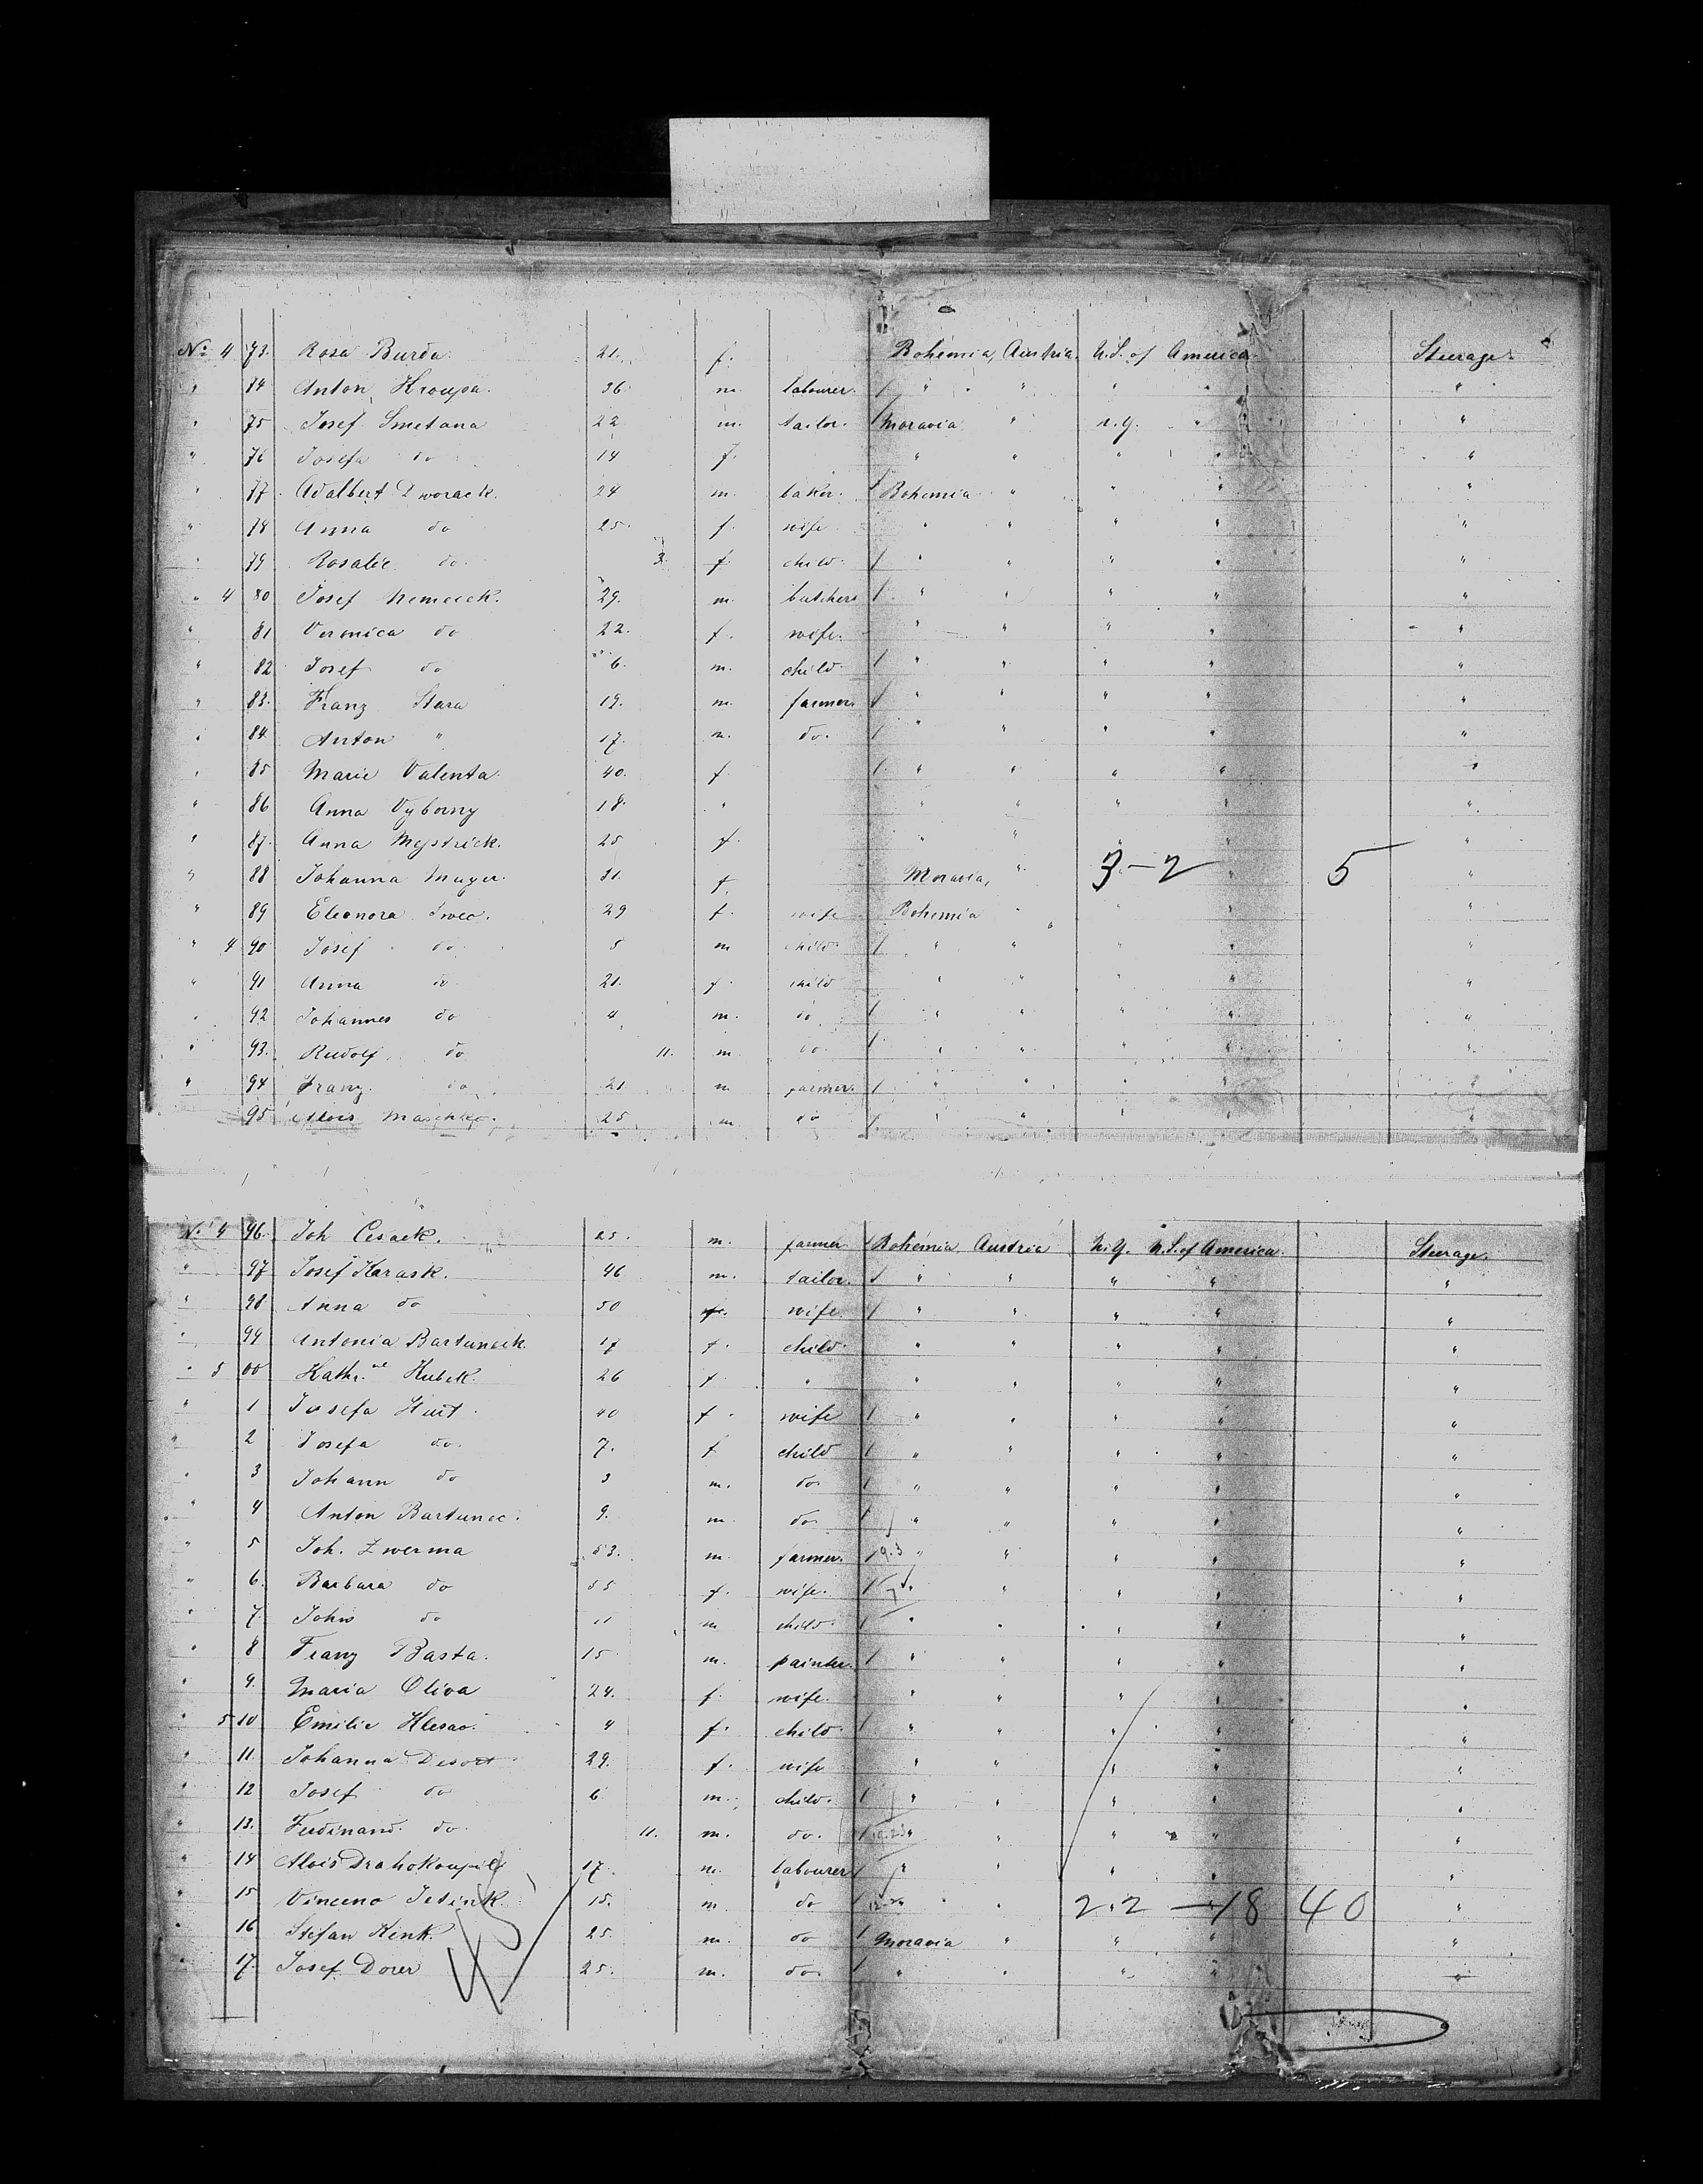 No 4 73. Rosa Burda. 21. f. Bohemia, Austria. U.S. of America. Steerage.
" 84 Anton Kroupa. 36. m. labourer. / " " " " "
" 75 Josef Smetana 22 m. tailor. / Moravia " N.Y. " "
" 76 Josefa do 14 f. " " " " "
" 77. Adalbert Dworack. 24 m. baker. / Bohemia " " " "
" 78 Anna do 25. f. wife " " " " "
" 79 Rosalie do. 3. f. child. / " " " " "
" 4 80 Josef Nemecek. 29. m. butcher. / " " " " "
" 81 Veronica do 22. f. wife. " " " " "
" 82 Josef do 6. m. child. / " " " " "
" 83. Franz Stara 19. m. farmer. / " " " " "
" 84. Anton " 17. m. do. / " " " " "
" 85 Marie Valenta. 40. f / " " " " "
" 86 Anna Vyborny 18. " " " " " "
" 87. Anna Mystrick. 25 f. " " " " "
" 88 Johanna Mayer. 31. f. Moravia, " 3-2 " 5 "
" 89 Eleonora Swec. 29 f. wife Bohemia " " " "
" 4 90 Josef do. 5 m child / " " " " "
" 91 Anna do 21. f. child " " " " "
" 92 Johannes do 4 m. do / " " " " "
" 93. Rudolf. do 11. m. do. / " " " " "
" 94 Franz. do 21 m farmer. / " " " " "
95 Alois Maschko. 25 m do / " " " " "
No 4 96. Joh Cesack. 25. m. farmer / Bohemia Austria N.Y. U.S. of America. Steerage.
" 97 Josef Karask. 46 m. tailor. / " " " " "
" 98 Anna do 50 f. wife. / " " " " "
" 99 Antonia Bartuneck. 17 f. child. " " " " "
" 5 00 Kath. Kubek 26 f. " " " " " "
" 1 Josefa Hurt. 40 f. wife / " " " " "
" 2 Josefa do. 7. f child / " " " " "
" 3 Johann do 3 m. do. / " " " " "
" 4 Anton Bartunec. 9. m. do. / " " " " "
" 5 Joh. Zwerma 53. m. farmer. / " " " " "
" 6. Barbara do 55 f. wife. / " " " " "
" 7 John do 11 m child. / " " " " "
" 8 Franz Basta. 15 m. painter. / " " " " "
" 9. Maria Oliva 24. f. wife. " " " " "
" 5 10 Emilie Hlesac. 4 f. child. / " " " " "
" 11. Johanna Desort 29. f. wife " " " " "
" 12 Josef do 6 m. child. / " " " " "
" 13. Ferdinand. do. 11. m. do. / " " " " "
" 14 Alois Drahokoupil 17. m. labourer / " " " " "
" 15 Vinceno Jesink. 15. m. do / " " 2.2 - 18 40 "
" 16 Stefan Kink. 25. m. do / Moravia " " " "
" 17. Josef Dorer 25. m. do. / " " " " "